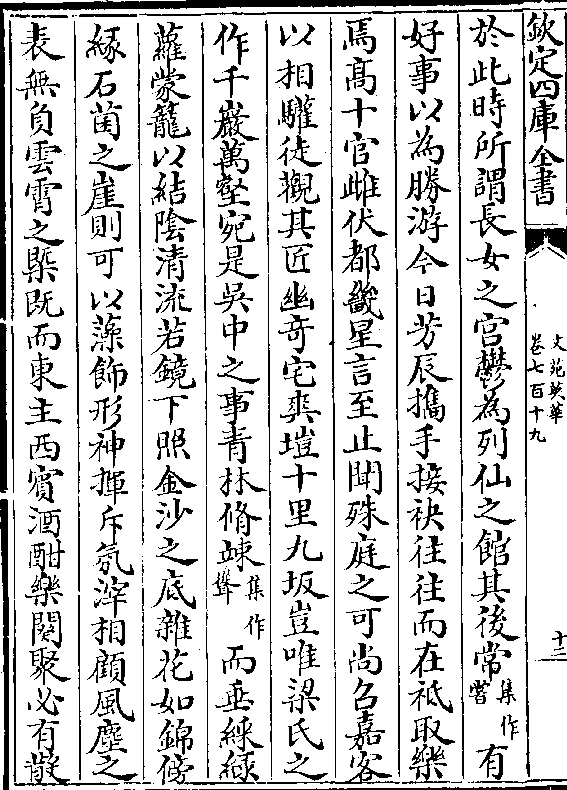 欽定四庫全書
文苑英華
卷七百十九
十二
於此時所謂長女之宮鬱為列仙之館其後常集作嘗有
好事以為勝游今日芳辰攜手接袂往往而在祗取樂
焉高十官雌伏都畿星言至止聞殊庭之可尚召嘉客
以相驩徒觀其匠幽奇宅爽塏十里九坂豈唯梁氏之
作千巖萬壑宛是吳中之事青林脩竦集作聳而垂綵緑
蘿蒙籠以結陰清流若鏡下照金沙之底雜花如錦傍
緣石菌之崖則可以藻飾形神揮斥氛滓相顧風塵之
表無負雲霄之槩既而東主西賓酒酣樂闋聚必有散